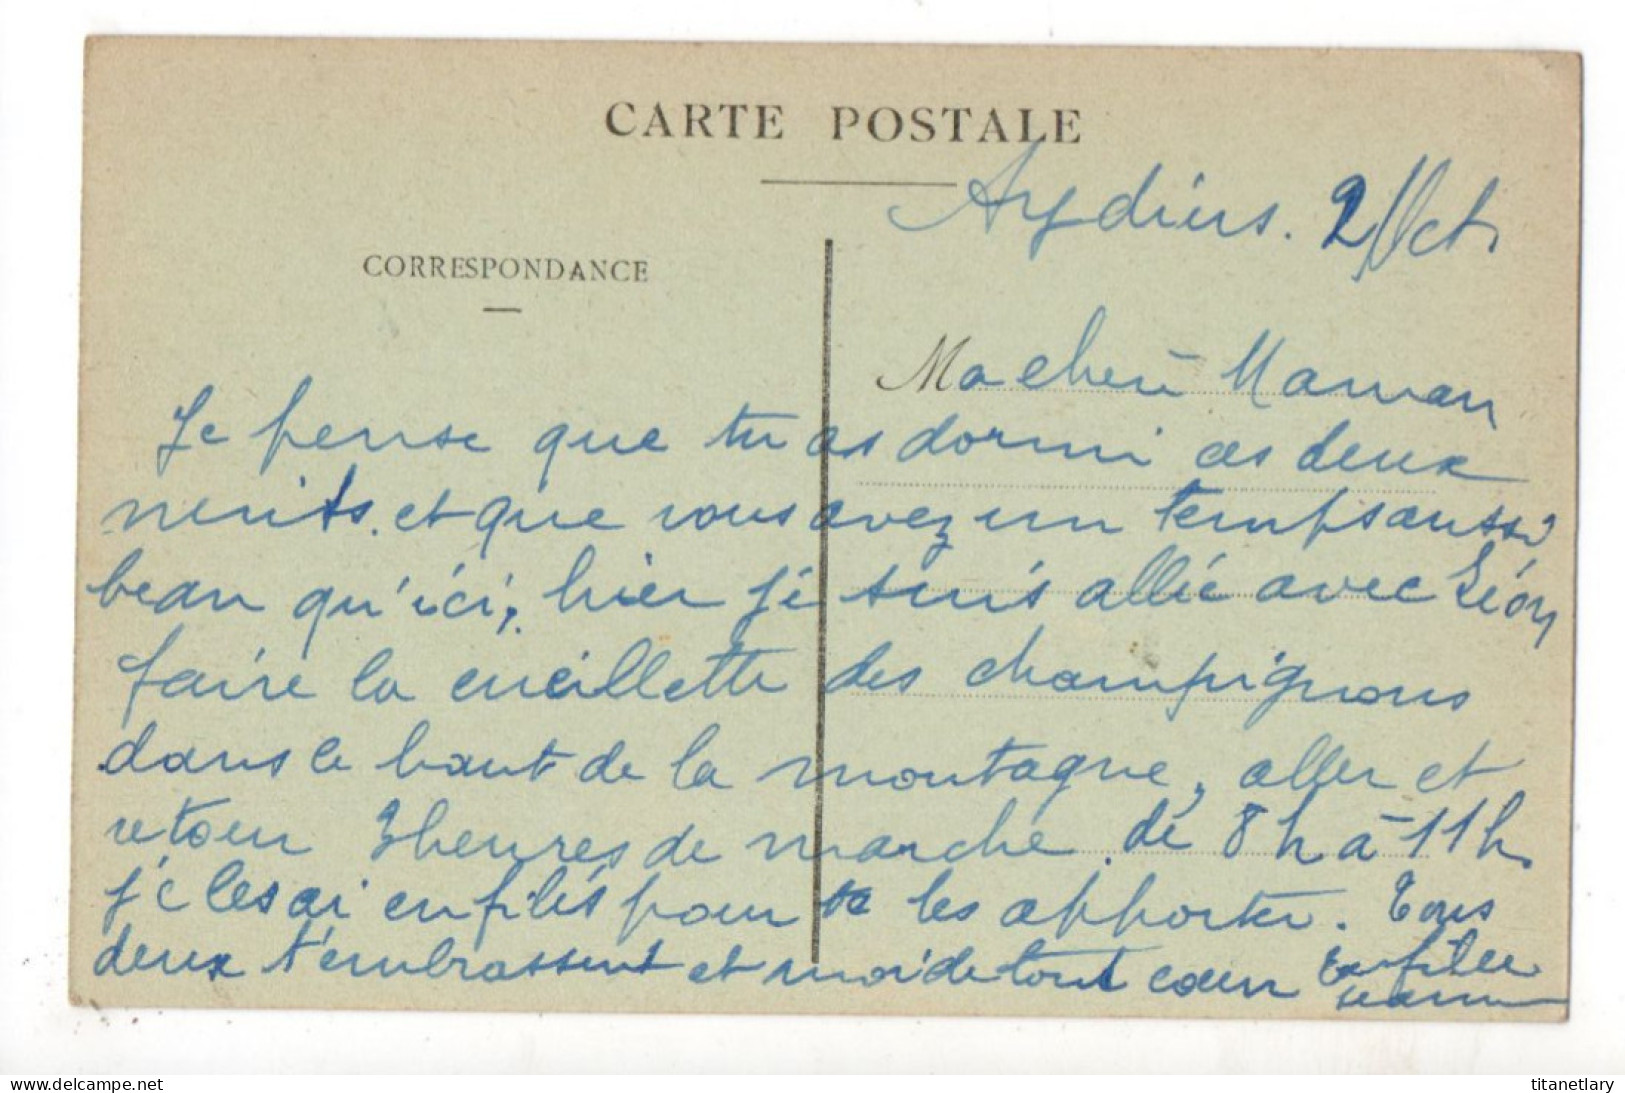 CARTE POSTALE
Aydius. 2/Oct.
CORRESPONDANCE
Ma cheri Maman
Je pense que tu as dormi ces deux
nuits. et que vous avez un temps aussi
beau qu'ici, hier je suis allée avec Léon
faire la cueillette des champignons
dans le haut de la montagne, aller et
retour 3 heures de marche. de 8 h à 11 h.
je les ai enfilés pour te les apporter. Tous
deux t'embrassent et moi de tout coeur
www.delcampe.net
titanetlary